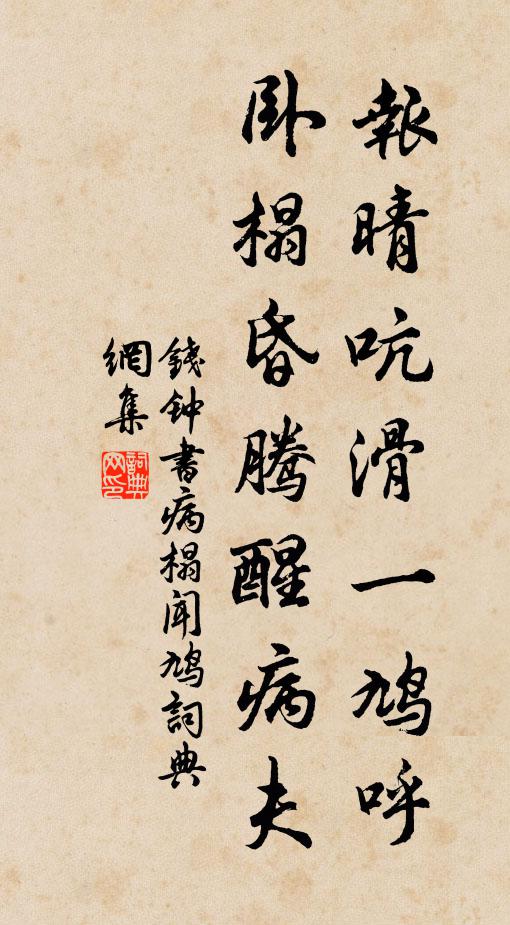 報晴吭滑一鳩呼
臥榻昏騰醒病夫
錢钟書病榻聞鳩詞典
網集
詞典網印